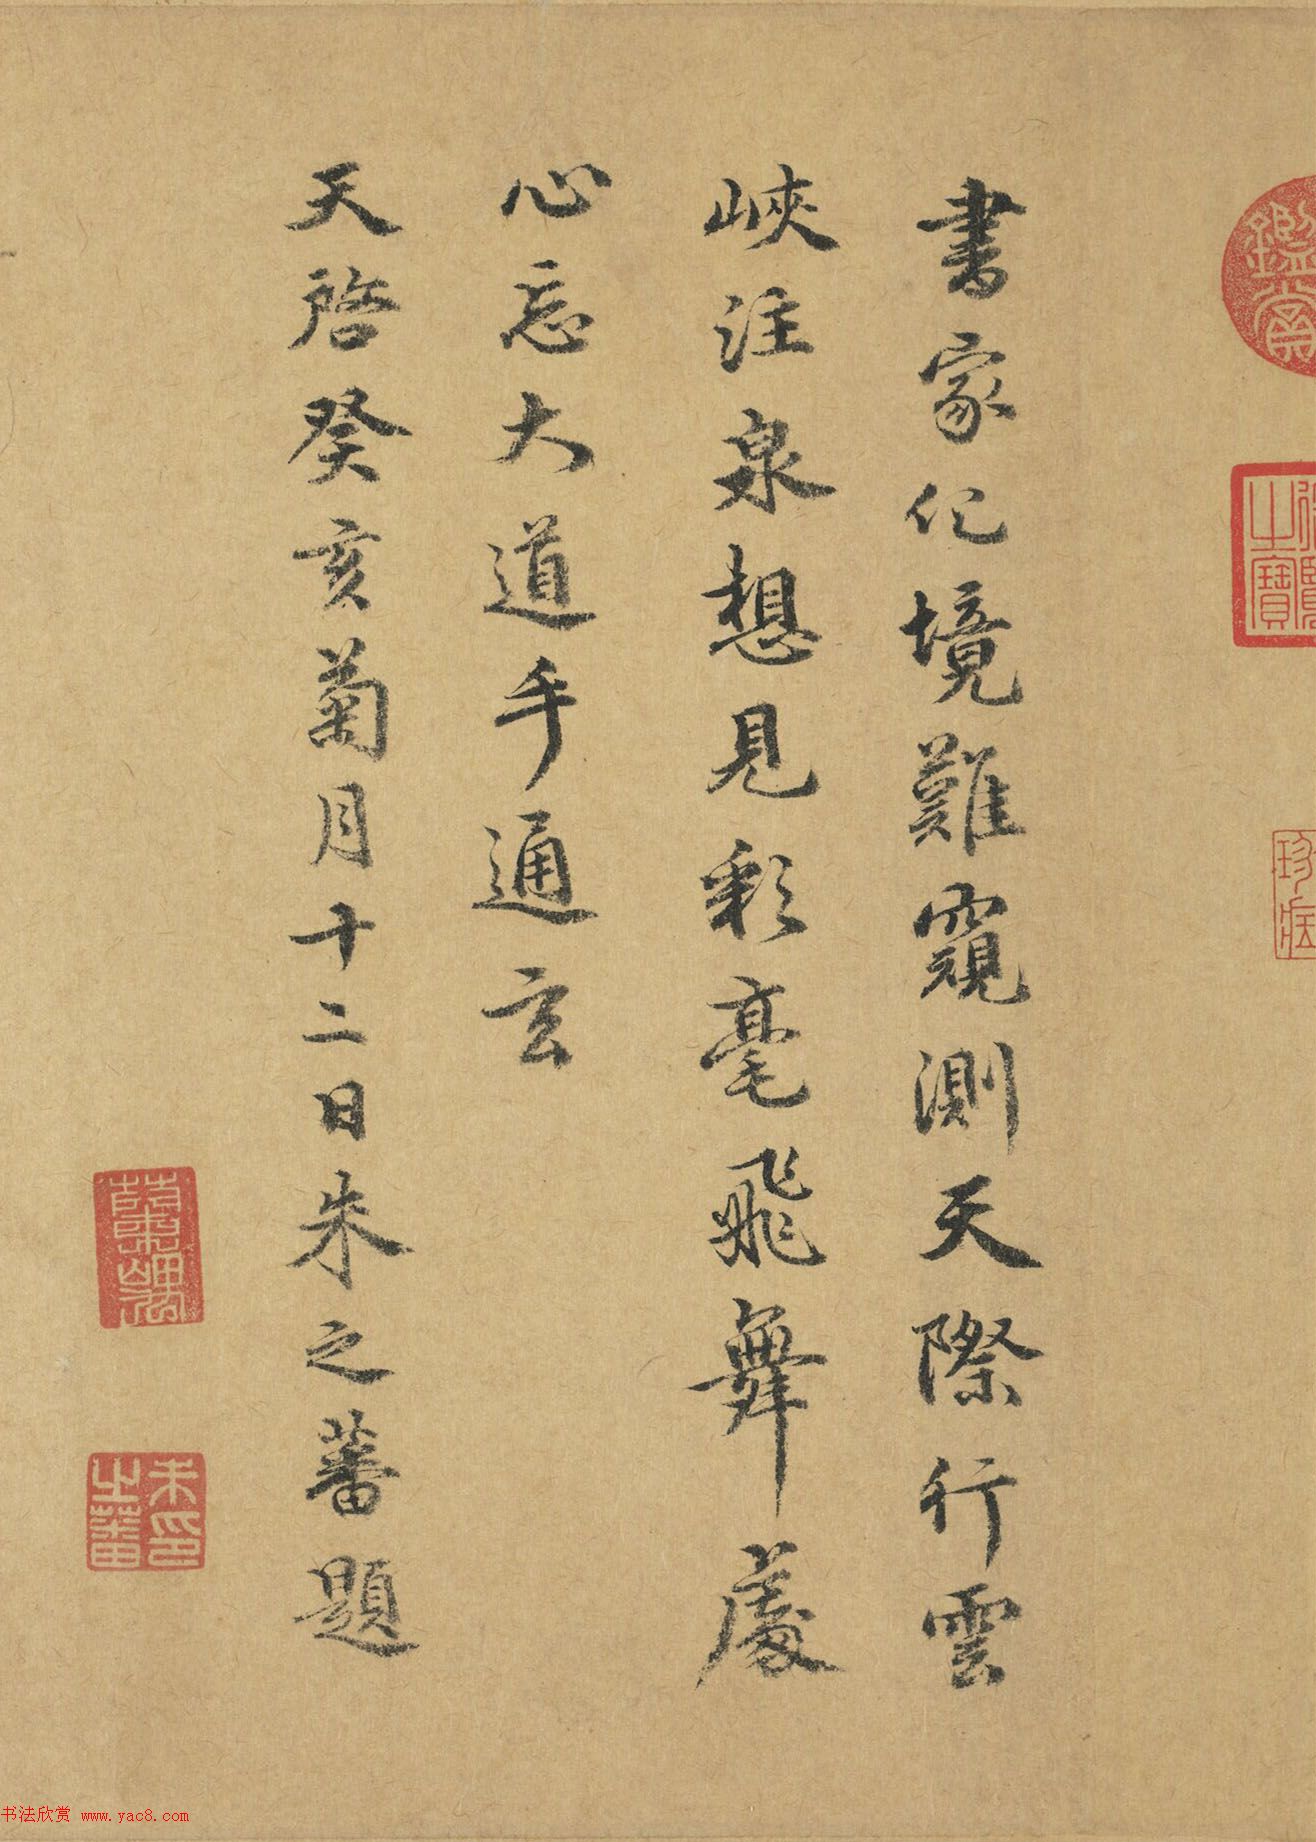 書家化境難窺測天際行雲
峽注泉想見彩毫飛舞處
心忘大道手通玄
天啓癸亥菊月十二日朱之蕃題
鑑賞
之寶
珍
朱印之蕃
书法欣赏 www.yac8.com